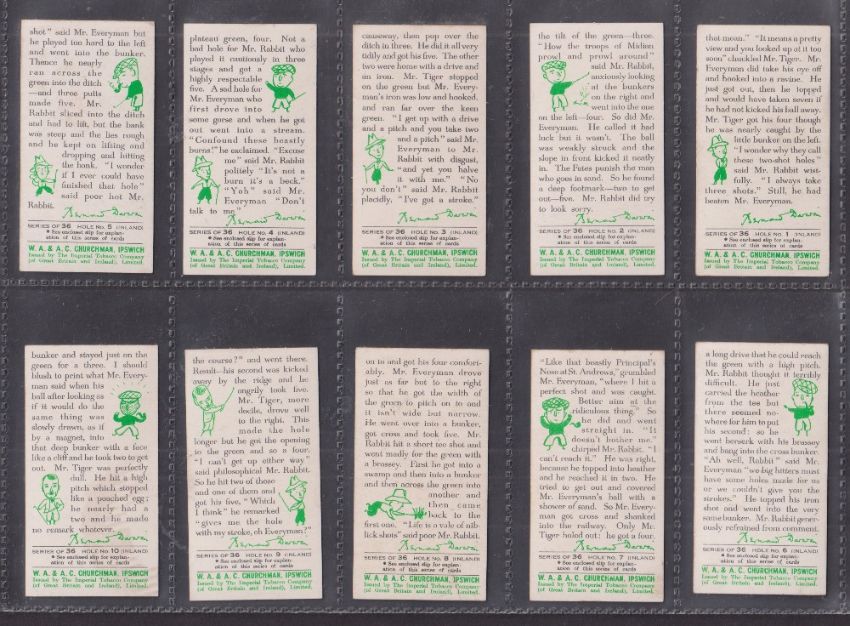 shot" said Mr. Everyman but
he played too hard to the left
and went into the bunker.
Thence he nearly
ran across the
green into the ditch
—and three putts
made five. Mr.
Rabbit sliced into the ditch
and had to lift, but the bank
was steep and the lies rough
and he kept on lifting and
dropping and hitting
the bank. "I wonder
if I ever could have
finished that hole"
said poor Mr.
Rabbit.
Bernard Darwin
SERIES OF 36 HOLE NO. 5 (INLAND)
See enclosed slip for explan-
ation of this series of cards
W. A. & A. C. CHURCHMAN, IPSWICH
Issued by The Imperial Tobacco Company
(of Great Britain and Ireland), Limited.
plateau green, four. Not a
bad hole for Mr. Rabbit who
played it cautiously in three
stages and got a
highly respectable
five. A sad hole for
Mr. Everyman who
first drove into
some gorse and when he
got out went into a stream.
"Confound these beastly
burns!" he exclaimed. "Excuse
me" said Mr. Rabbit
politely "It's not a
burn it's a beck."
"Yoh" said Mr.
Everyman "Don't
talk to me."
Bernard Darwin
SERIES OF 36 HOLE NO. 4 (INLAND)
See enclosed slip for explan-
ation of this series of cards
W. A. & A. C. CHURCHMAN, IPSWICH
Issued by The Imperial Tobacco Company
(of Great Britain and Ireland), Limited.
causeway, then pop over the
ditch in three. He did it all very
tidily and got his five. The other
two were home with a drive and
an iron. Mr. Tiger stopped
on the green but Mr. Every-
man's iron was low and hooked,
and ran far over the keen
green. "I get up with a drive
and a pitch and you take two
and a pitch" said Mr.
Everyman to Mr.
Rabbit with disgust,
"and yet you halve
it with me." "No
you don't" said Mr. Rabbit
placidly, "I've got a stroke."
Bernard Darwin
SERIES OF 36 HOLE NO. 3 (INLAND)
See enclosed slip for explan-
ation of this series of cards
W. A. & A. C. CHURCHMAN, IPSWICH
Issued by The Imperial Tobacco Company
(of Great Britain and Ireland), Limited.
the tilt of the green—three.
"How the troops of Midian
prowl and prowl around"
said Mr. Rabbit,
anxiously looking
at the bunkers
on the right and
went into the one
on the left—four. So did Mr.
Everyman. He called it bad
luck but it wasn't. The ball
was weakly struck and the
slope in front kicked it neatly
in. The Fates punish the man
who goes in sand. So he found
a deep footmark—two to get
out—five. Mr. Rabbit did try
to look sorry.
Bernard Darwin
SERIES OF 36 HOLE NO. 2 (INLAND)
See enclosed slip for explan-
ation of this series of cards
W. A. & A. C. CHURCHMAN, IPSWICH
Issued by The Imperial Tobacco Company
(of Great Britain and Ireland), Limited.
that moan." "It means a pretty
view and you looked up at it too
soon" chuckled Mr. Tiger. Mr.
Everyman did take his eye off
and hooked into a ravine. He
just got out, then he topped
and would have taken seven if
he had not kicked his ball away.
Mr. Tiger got his four though
he was nearly caught by the
little bunker on the left.
"I wonder why they call
these two-shot holes"
said Mr. Rabbit wist-
fully. "I always take
three shots." Still, he had
beaten Mr. Everyman.
Bernard Darwin
SERIES OF 36 HOLE NO. 1 (INLAND)
See enclosed slip for explan-
ation of this series of cards
W. A. & A. C. CHURCHMAN, IPSWICH
Issued by The Imperial Tobacco Company
(of Great Britain and Ireland), Limited.
bunker and stayed just on the
green for a three. I should
blush to print what Mr. Every-
man said when his
ball after looking as
if it would do the
same thing was
slowly drawn, as if
by a magnet, into
that deep bunker with a face
like a cliff and he took two to get
out. Mr. Tiger was perfectly
dull. He hit a high
pitch which stopped
like a poached egg;
he nearly had a
two and he made
no remark whatever.
Bernard Darwin
SERIES OF 36 HOLE NO. 10 (INLAND)
See enclosed slip for explan-
ation of this series of cards
W. A. & A. C. CHURCHMAN, IPSWICH
Issued by The Imperial Tobacco Company
(of Great Britain and Ireland), Limited.
the course?" and went there.
Result—his second was kicked
away by the ridge and he
angrily took five.
Mr. Tiger, more
docile, drove well
to the right. This
made the hole
longer but he got the opening
to the green and so a four.
"I can't get up either way"
said philosophical Mr. Rabbit.
So he hit two of those
and one of them and
got his five, "Which
I think" he remarked
"gives me the hole
with my stroke, oh Everyman?"
Bernard Darwin
SERIES OF 36 HOLE NO. 9 (INLAND)
See enclosed slip for explan-
ation of this series of cards
W. A. & A. C. CHURCHMAN, IPSWICH
Issued by The Imperial Tobacco Company
(of Great Britain and Ireland), Limited.
on to and got his four comfort-
ably. Mr. Everyman drove
just as far but to the right
so that he got the width of
the green to pitch on to and
it isn't wide but narrow.
He went over into a bunker,
got cross and took five. Mr.
Rabbit hit a short tee shot and
went madly for the green with
a brassey. First he got into a
swamp and then into a bunker
and then across the green into
another and
then came
back to the
first one. "Life is a vale of nib-
lick shots" said poor Mr. Rabbit.
Bernard Darwin
SERIES OF 36 HOLE NO. 8 (INLAND)
See enclosed slip for explan-
ation of this series of cards
W. A. & A. C. CHURCHMAN, IPSWICH
Issued by The Imperial Tobacco Company
(of Great Britain and Ireland), Limited.
"Like that beastly Principal's
Nose at St. Andrews," grumbled
Mr. Everyman, "where I hit a
perfect shot and was caught.
Better aim at the
ridiculous thing." So
he did and went
straight in. "It
doesn't bother me."
chirped Mr. Rabbit. "I
can't reach it." He was right,
because he topped into heather
and he reached it in two. He
tried to get out and covered
Mr. Everyman's ball with a
shower of sand. So Mr. Every-
man got cross and shanked
into the railway. Only Mr.
Tiger held out: he got a four.
Bernard Darwin
SERIES OF 36 HOLE NO. 7 (INLAND)
See enclosed slip for explan-
ation of this series of cards
W. A. & A. C. CHURCHMAN, IPSWICH
Issued by The Imperial Tobacco Company
(of Great Britain and Ireland), Limited.
a long drive that he could reach
the green with a high pitch.
Mr. Rabbit thought it terribly
difficult. He just
carried the heather
from the tee but
there seemed no-
where for him to put
his second: so he
went berserk with his brassey
and bang into the cross bunker.
"Ah well, Rabbit" said Mr.
Everyman "we big hitters must
have some holes made for us
or we couldn't give you the
strokes." He topped his iron
shot and went into the very
same bunker. Mr. Rabbit gener-
ously refrained from comment.
Bernard Darwin
SERIES OF 36 HOLE NO. 6 (INLAND)
See enclosed slip for explan-
ation of this series of cards
W. A. & A. C. CHURCHMAN, IPSWICH
Issued by The Imperial Tobacco Company
(of Great Britain and Ireland), Limited.